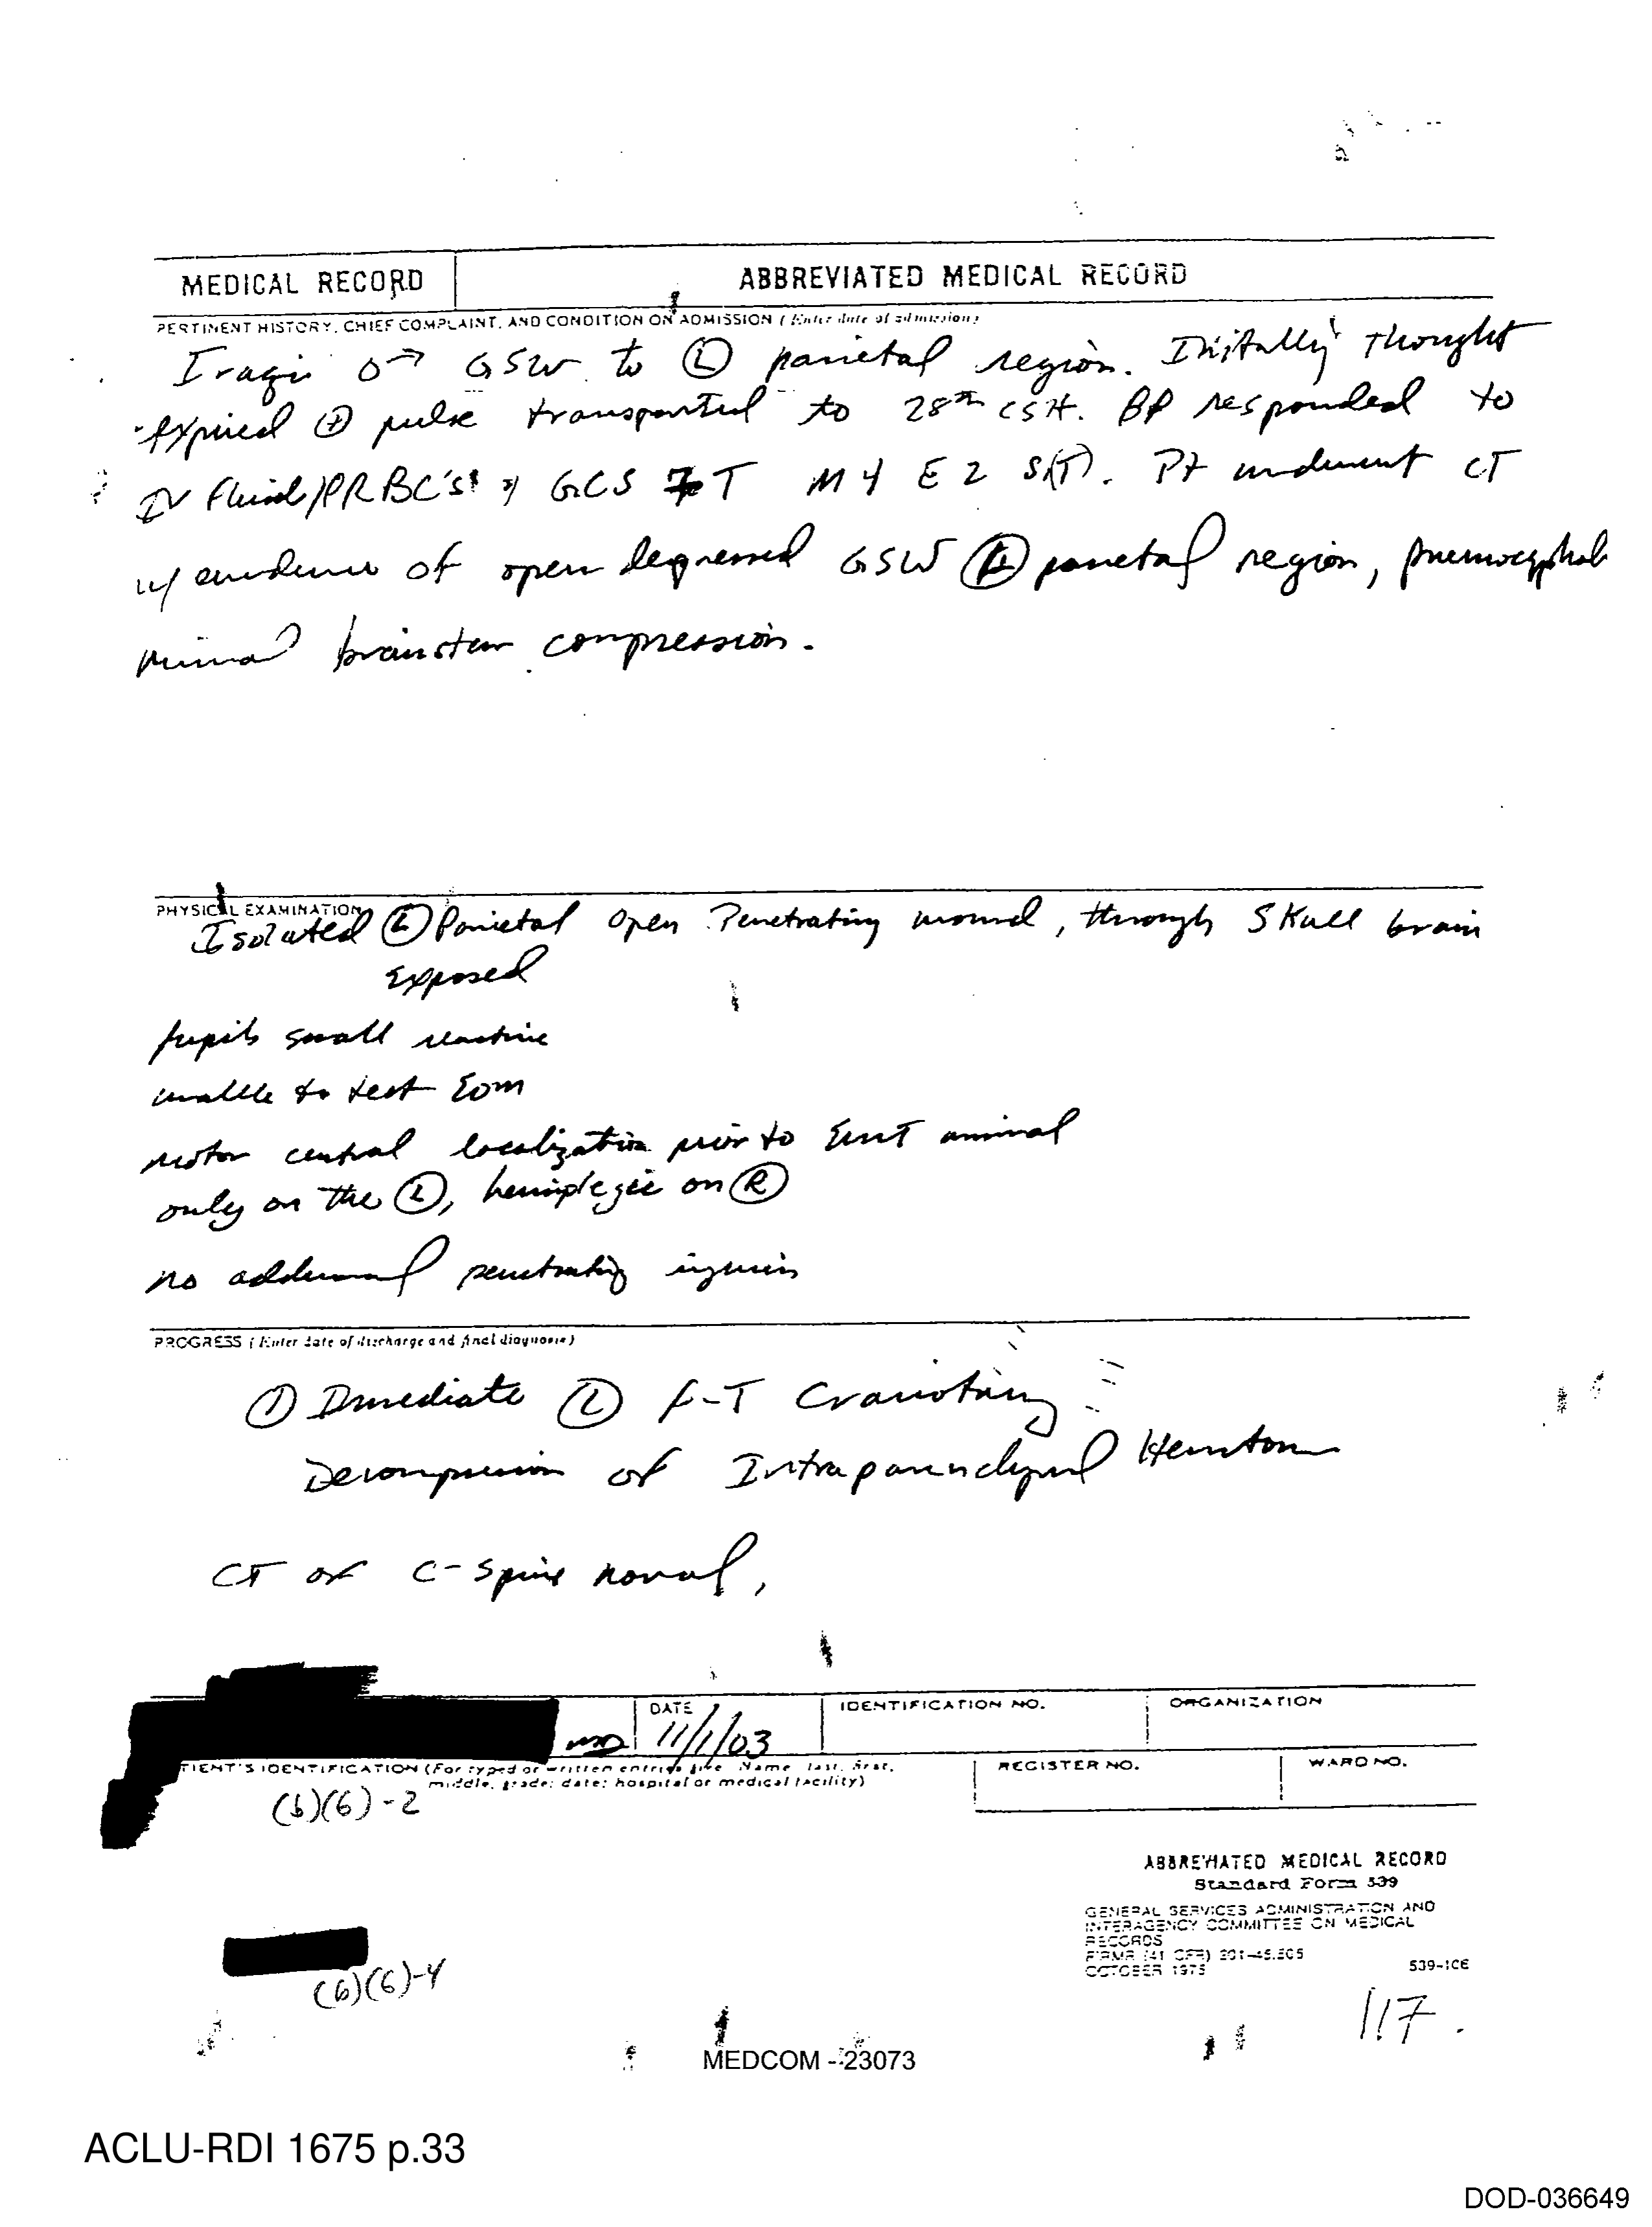 MEDICAL RECORD
ABBREVIATED MEDICAL RECORD
PERTINENT HISTORY, CHIEF COMPLAINT, AND CONDITION ON ADMISSION (Enter date of admission)
Iraqi ♂ GSW to Ⓛ parietal region. Initally thought
expired ⊕ pulse transported to 28th CSH. BP responded to
IV Fluid/PRBC's GCS 7T M4 E2 (T). Pt underwent CT
w/ evidence of open depressed GSW Ⓛ parietal region,
brainstem compression.
PHYSICAL EXAMINATION
Isolated Ⓛ Parietal Open Penetrating wound, through Skull brain
Exposed
pupils small reactive
unable to test EOM
motor central localization prior to
only on the Ⓛ, hemiplegic on Ⓡ
no additional penetrating injuries
PROGRESS (Enter date of discharge and final diagnosis)
① Immediate Ⓛ F-T Craniotomy
Decompression of Intraparenchymal Hematoma
CT of C-Spine normal,
MD
DATE
11/1/03
IDENTIFICATION NO.
ORGANIZATION
TIENT'S IDENTIFICATION (For typed or written entries give Name last, first,
middle, grade; date; hospital or medical facility)
REGISTER NO.
WARD NO.
(b)(6)-2
ABBREVIATED MEDICAL RECORD
Standard Form 539
GENERAL SERVICES ADMINISTRATION AND
INTERAGENCY COMMITTEE ON MEDICAL
RECORDS
FIRMR (41 CFR) 201-45.505
OCTOBER 1975
539-108
(b)(6)-4
117.
MEDCOM - 23073
ACLU-RDI 1675 p.33
DOD-036649